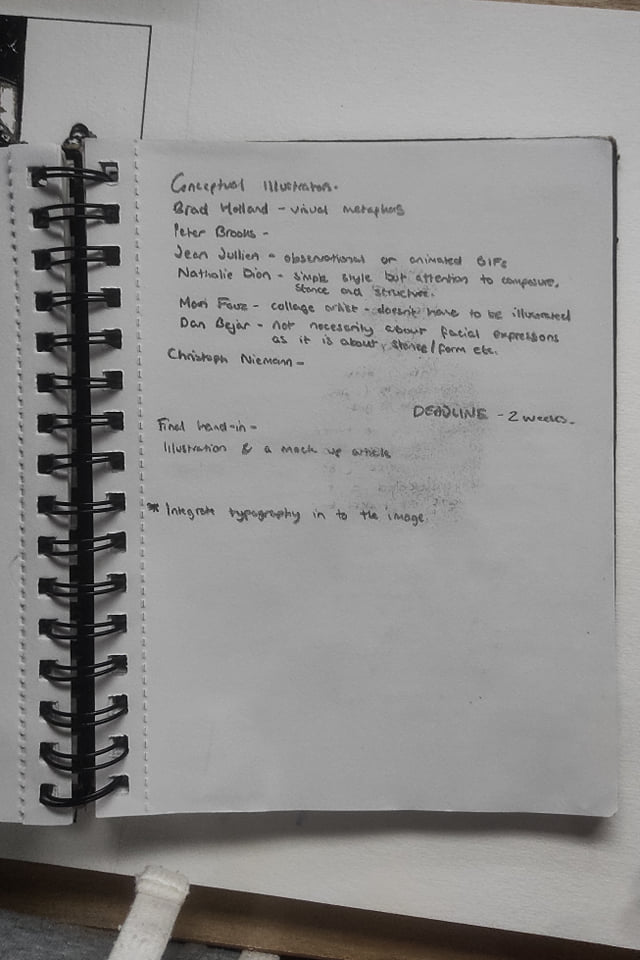 Conceptual Illustrators.
Brad Holland - visual metaphors
Peter Brooks -
Jean Jullien - observational or animated GIFs
Nathalie Dion - simple style but attention to composure,
stance and structure.
Mari Fouz - collage artist - doesn't have to be illustrated
Dan Bejar - not necessarily about facial expressions
as it is about stance/form etc.
Christoph Niemann -
DEADLINE - 2 weeks.
Final hand-in -
Illustration & a mock up article
* Integrate typography in to the image